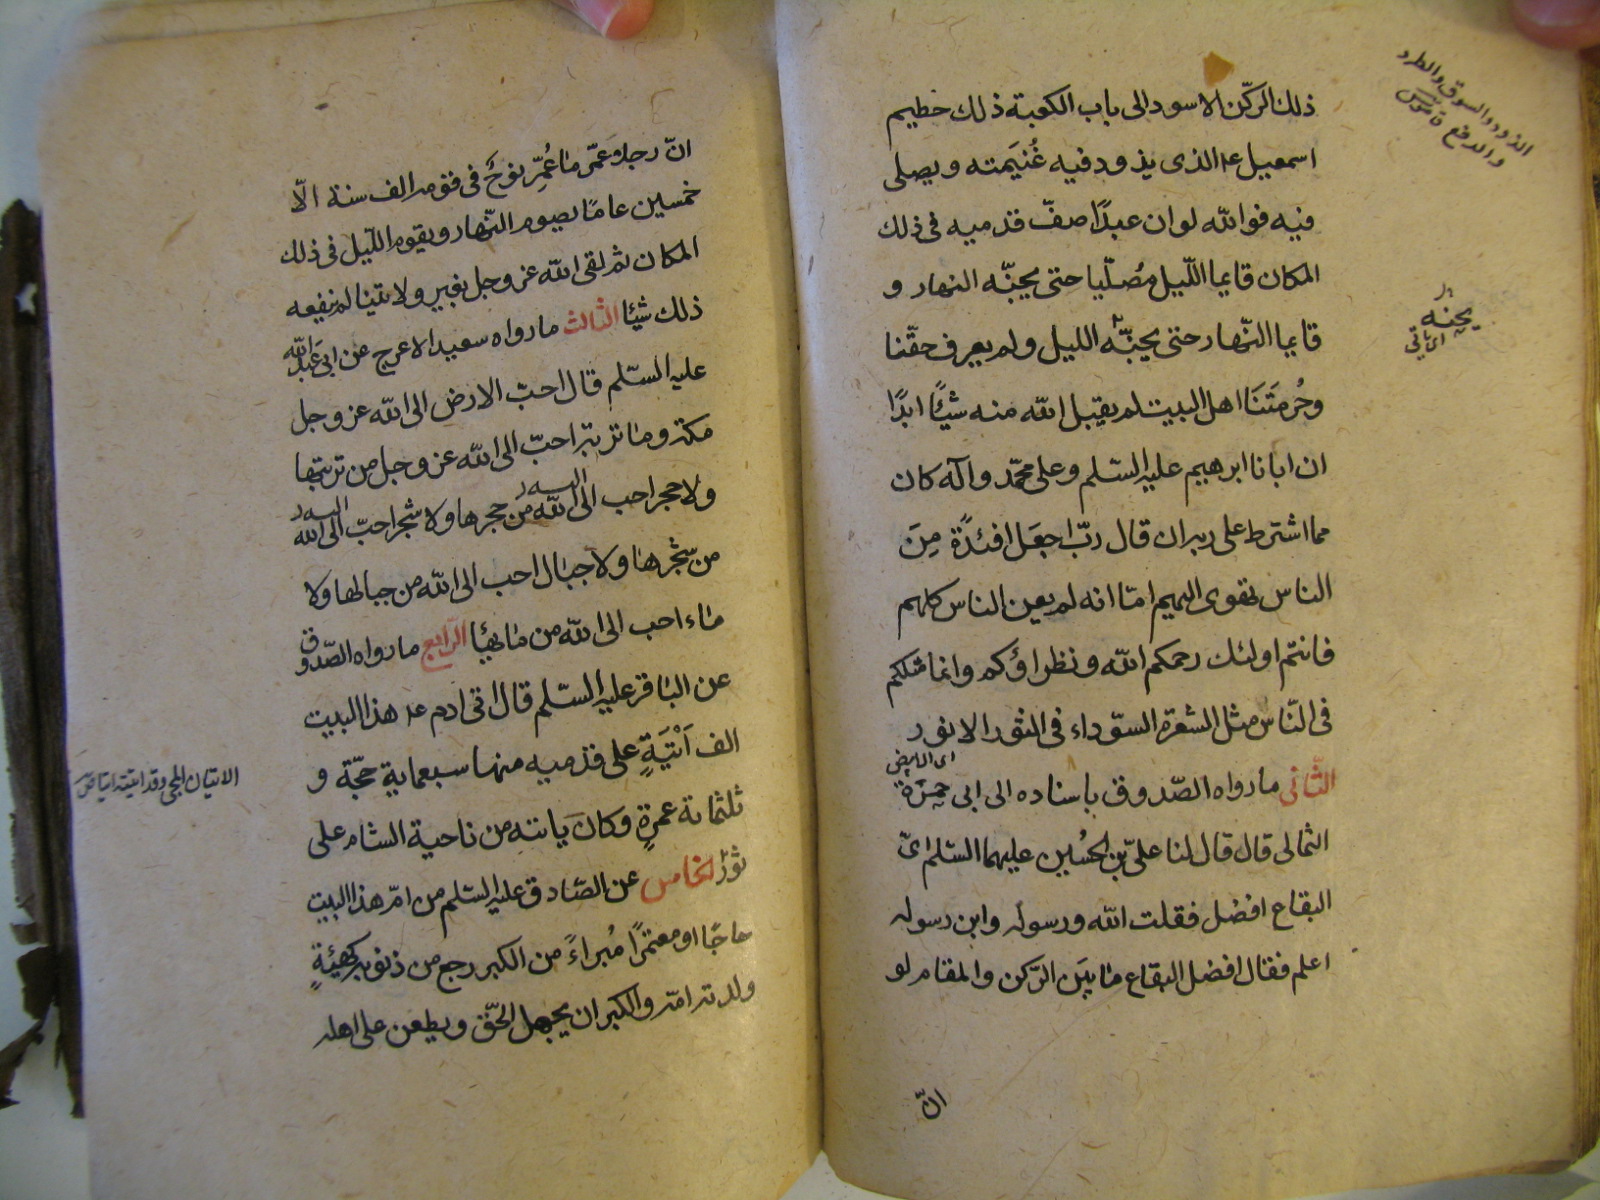 ذلك الركن الاسود الى باب الكعبة ذلك حطيم
اسمعيل ع الذى يذود فيه غُنَيمته ويصلى
فيه فوالله لو ان عبدًا صفّ قدميه فى ذلك
المكان قايما اللّيل مُصلّيا حتى يجنّه النهار و
قايما النّهار حتى يجنّه الليل ولم يعرف حقّنا
وحُرمَتَنَا اهل البيت لم يقبل الله منه شيئًا ابدًا
ان ابانا ابرهيم عليه السّلم وعلى محمّد وآله كان
مما اشترط على ربه ان قال ربّ اجعَل افئدَة مِنَ
الناس تهوى اليهم امّا انه لم يعن الناس كلهم
فانتم اولئك رحمكم الله ونظراؤكم وانما مثلكم
فى النّاس مثل الشعرة السّوداء فى الثور الانور
اى الابيض
الثّانى ما رواه الصّدوق باسناده الى ابى حمزة
الثمالى قال قال لنا علىّ بن الحُسين عليهما السّلم اىّ
البقاع افضل فقلت الله ورسوله وابن رسوله
اعلم فقال افضل البقاع ما بَين الرّكن والمقام لو
انّ
الذود والسوق والطرد
والدفع قاموس
يجنه
اى ياتى
انّ رجلا عَمّر ما عُمِّر نوحٌ فى قومه الف سنة الّا
خمسين عامًا يصوم النّهار ويقوم اللّيل فى ذلك
المكان ثم لقى الله عز وجل بغير ولايتنا لم ينفعه
ذلك شيئا الثالث ما رواه سعيد الاعرج عن ابى عبد الله
عليه السّلم قال احبّ الارض الى الله عز وجل
مكة وما تربة احبّ الى الله عز وجل من تربتها
ولا حجر احب الى الله من حجرها ولا شجر احبّ الى الله
من شجرها ولا جبال احب الى الله من جبالها ولا
ماء احب الى الله من مايها الرّابع ما رواه الصّدوق
عن الباقر عليه السّلم قال اتى ادم ع هذا البيت
الف اَتْيَةٍ على قدميه منها سبعماية حجّة و
ثلثمائة عمرةٍ وكانَ ياتيه من ناحية الشام على
ثورٍ الخامس عن الصّادق عليه السّلم من امّ هذا البيت
حاجًا او معتمرًا مُبراءً من الكبر رجع من ذنوبه كهيئةِ
ولدته امّه والكبر ان يجهل الحّق ويطعن على اهله
الاتيان المجى وقد اتيته اتيا ص